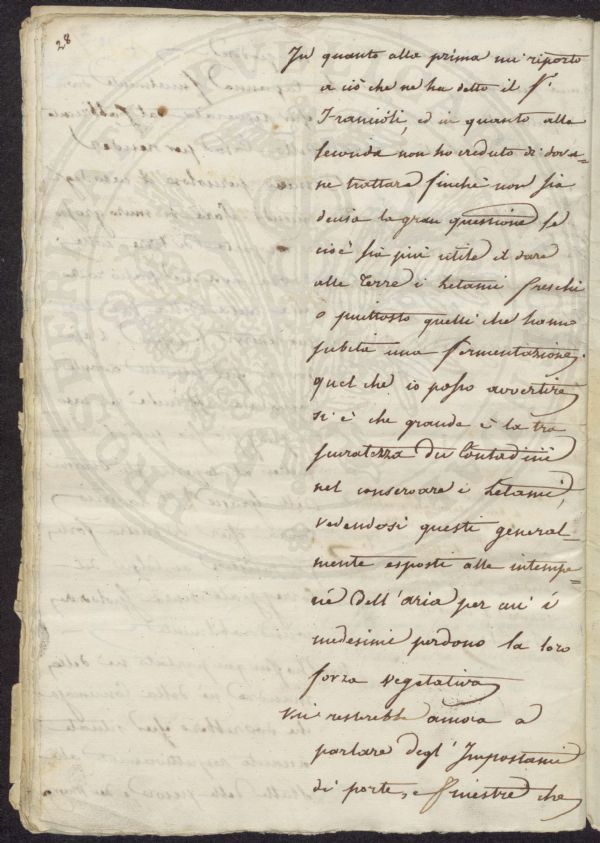 28
In quanto alla prima mi riporto
a ciò che ne ha detto il S.r
Francioli, ed in quanto alla
seconda non ho creduto di dova=
ne trattare finchè non sia
decisa la gran questione se
cioè sia più utile il dare
alle Terre i Letami freschi
o piuttosto quelli che hanno
subita una fermentazione.
quel che io posso avvertire
si è che grande è la tra
scuratezza dei Contadini
nel conservare i Letami,
vedendosi questi general=
mente esposti alle intempe=
rie dell'aria per cui i
medesimi perdono la loro
forza vegetativa
Mi resterebbe ancora a
parlare degl'Impostami
di porte, e finestre che